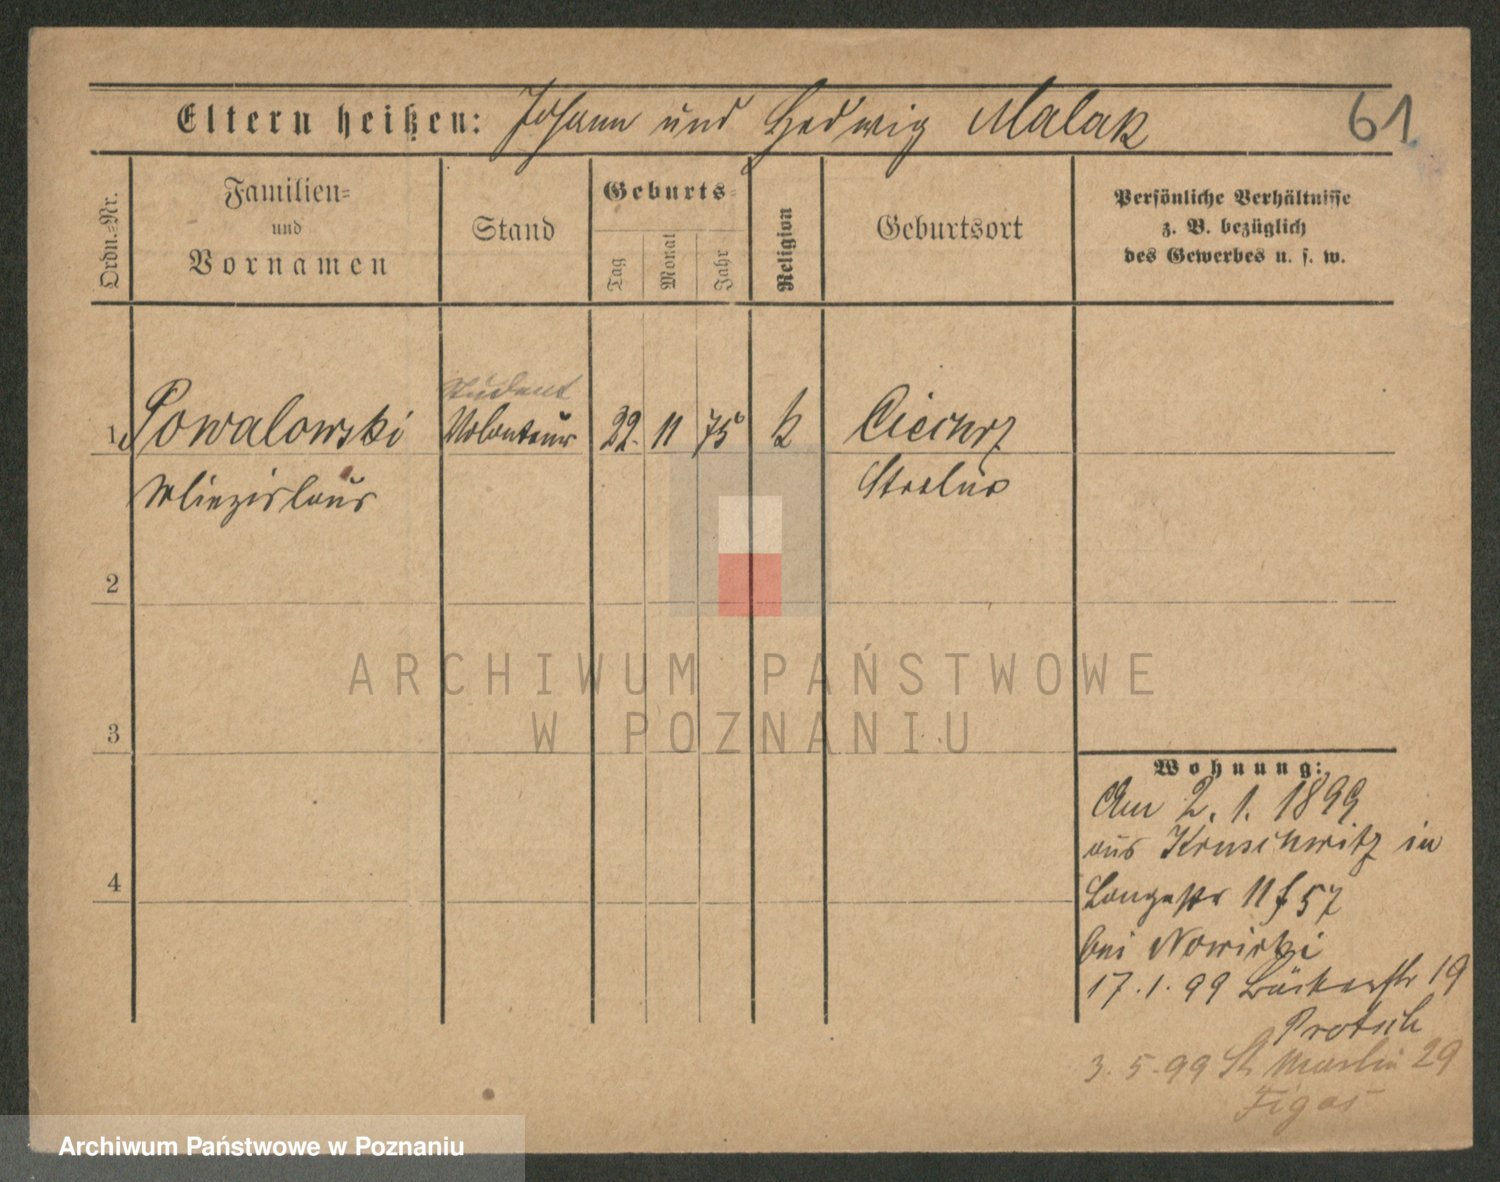 Eltern heißen: Johann und Hedwig Malak
61
Ordn.-Nr.
Familien- und Vornamen
Stand
Geburts-
Tag
Monat
Jahr
Religion
Geburtsort
Persönliche Verhältnisse
z. B. bezüglich
des Gewerbes u. s. w.
Student
1 Powalowski Volonteur 22. 11 75 k
Miezislaus Strelno
2
3
4
ARCHIWUM PAŃSTWOWE
W POZNANIU
Wohnung:
Am 2. 1. 1899
aus Kruschwitz in
Langestr 11 f 57
bei Nowicki
17. 1. 99 Bäckerstr 19
Protsch
3. 5. 99 St Martin 29
Figas
Archiwum Państwowe w Poznaniu